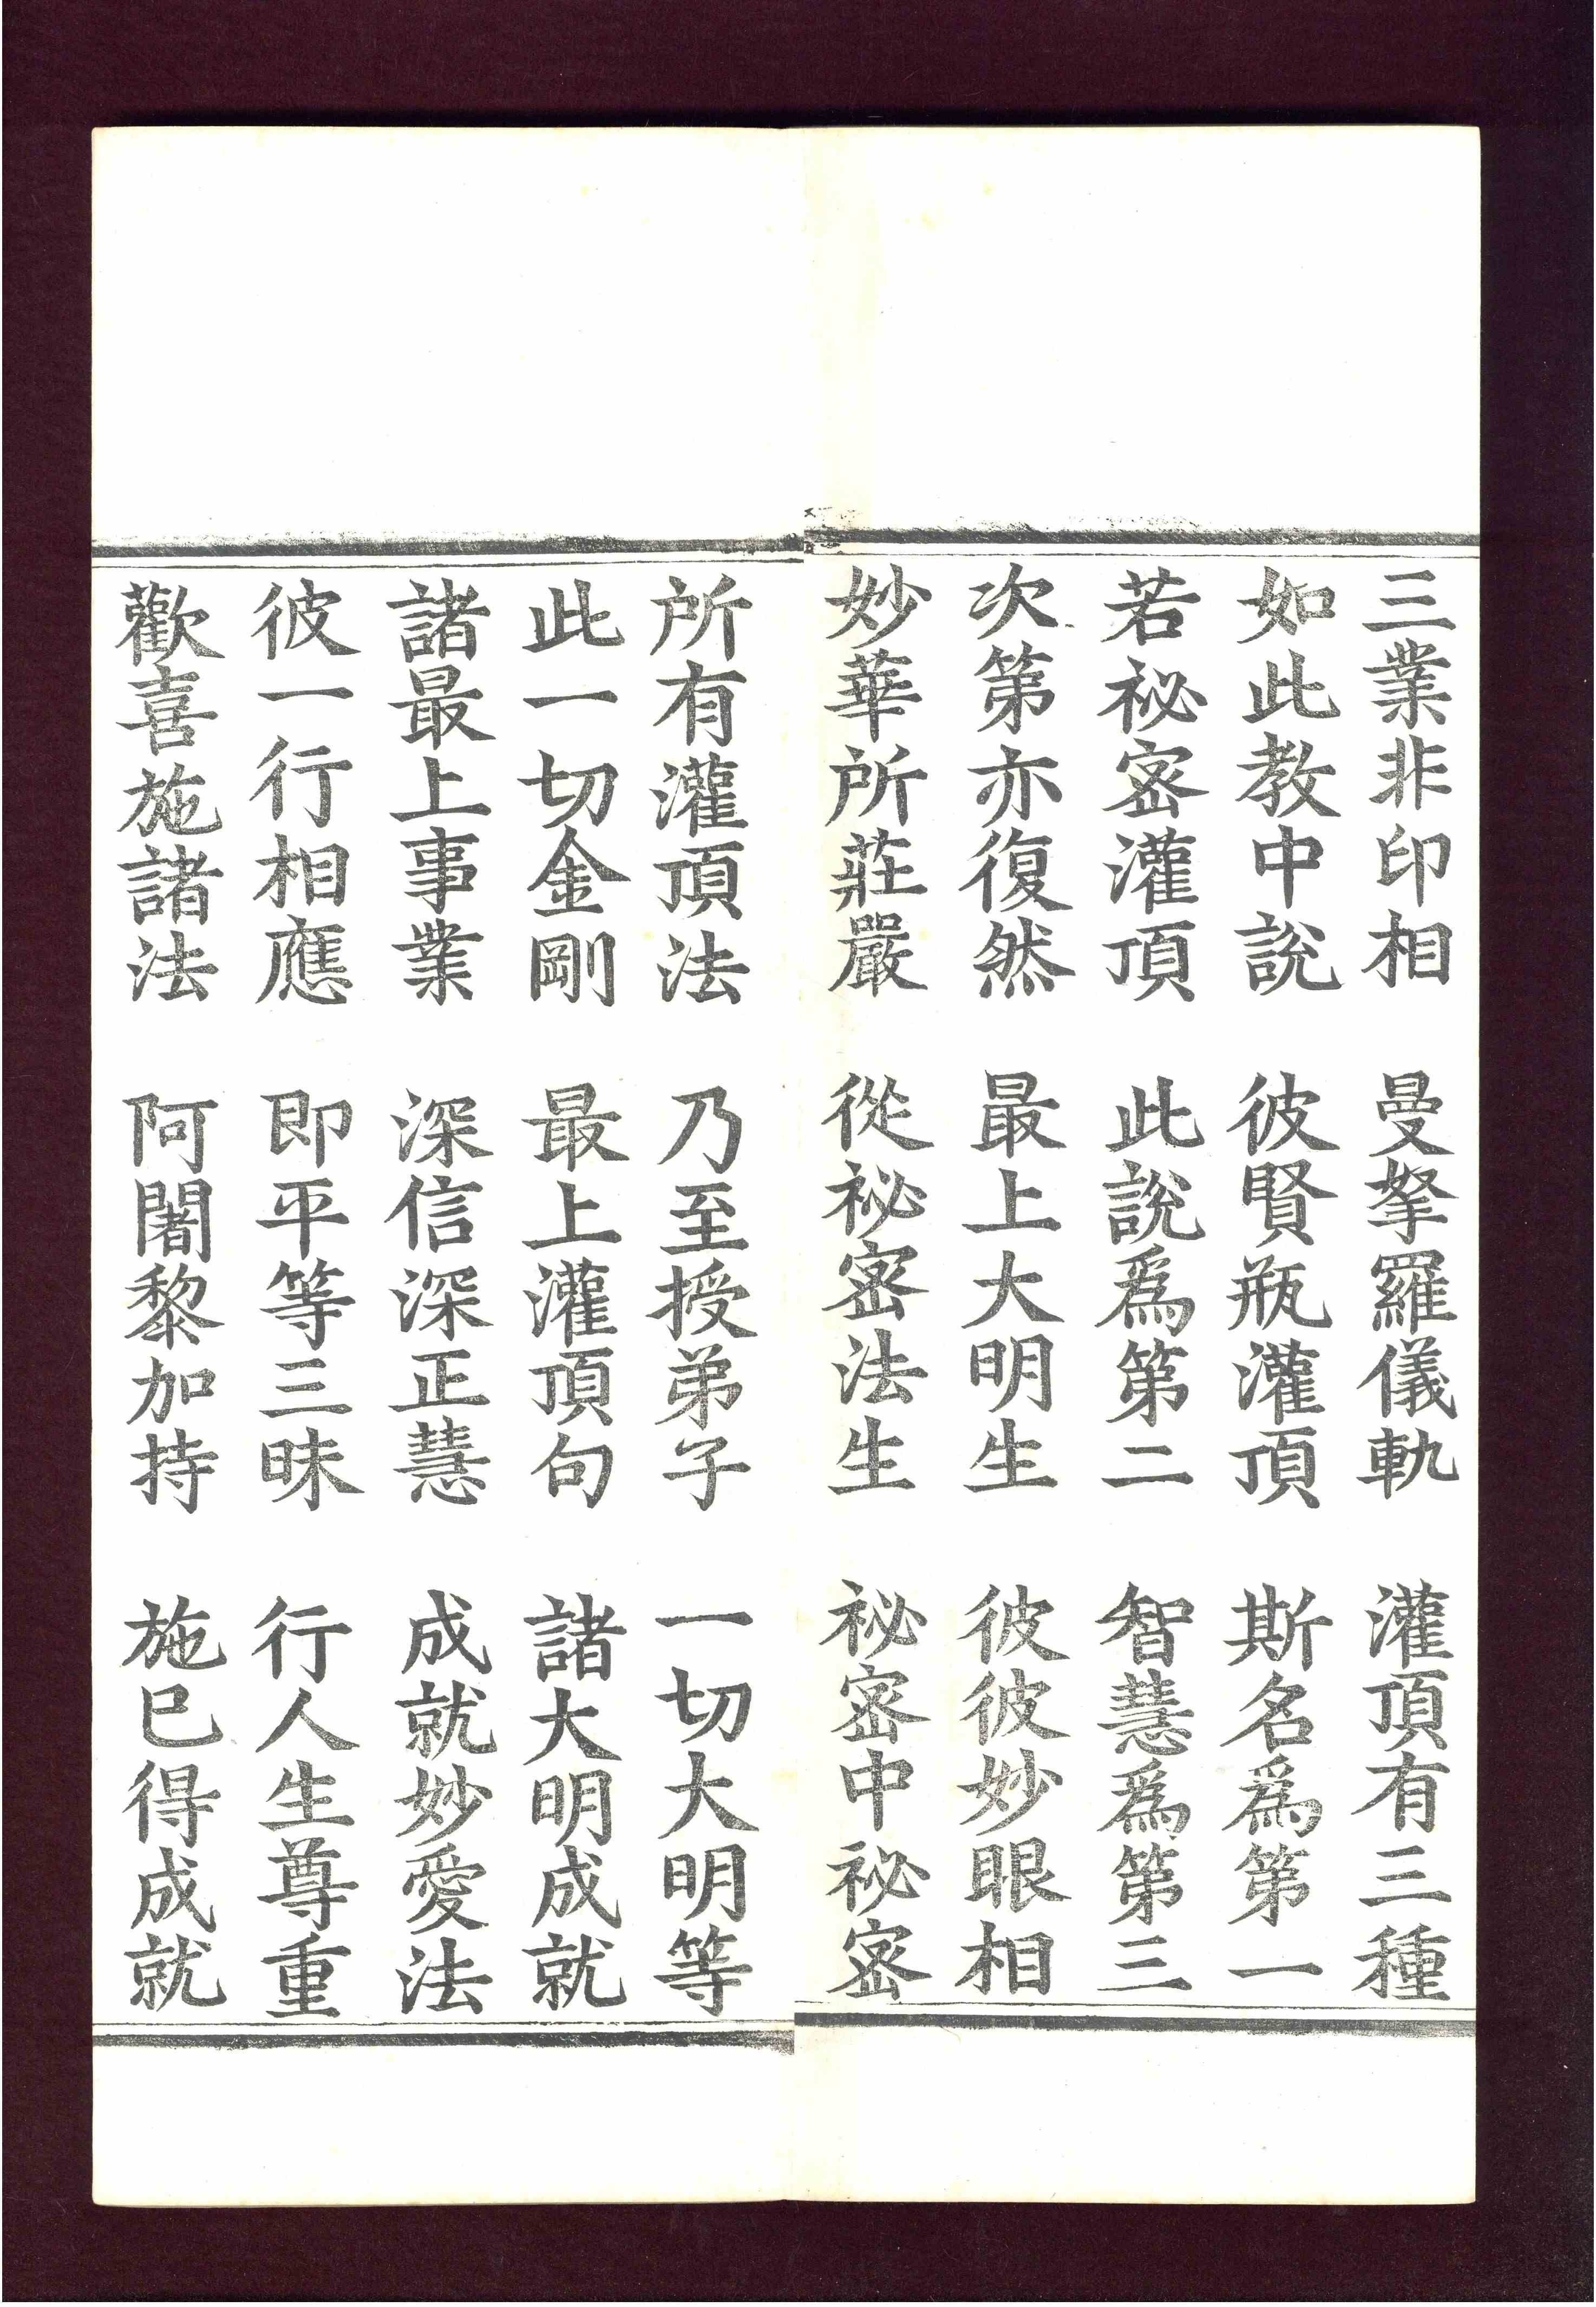 三業非印相　曼拏羅儀軌　灌頂有三種
如此教中說　彼賢瓶灌頂　斯名爲第一
若祕密灌頂　此說爲第二　智慧爲第三
次第亦復然　最上大明生　彼彼妙眼相
妙華所莊嚴　從祕密法生　祕密中祕密
所有灌頂法　乃至授弟子　一切大明等
此一切金剛　最上灌頂句　諸大明成就
諸最上事業　深信深正慧　成就妙愛法
彼一行相應　即平等三昧　行人生尊重
歡喜施諸法　阿闍黎加持　施已得成就